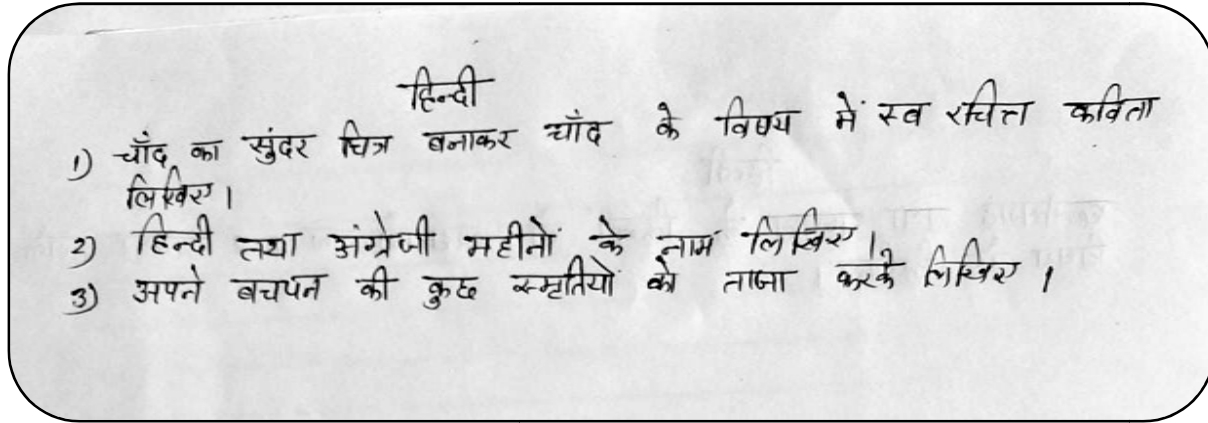 हिन्दी
1) चाँद का सुंदर चित्र बनाकर चाँद के विषय में स्व रचित्त कविता
लिखिए।
2) हिन्दी तथा अंग्रेजी महीनों के नाम लिखिए।
3) अपने बचपन की कुछ स्मृतियों को ताजा करके लिखिए ।